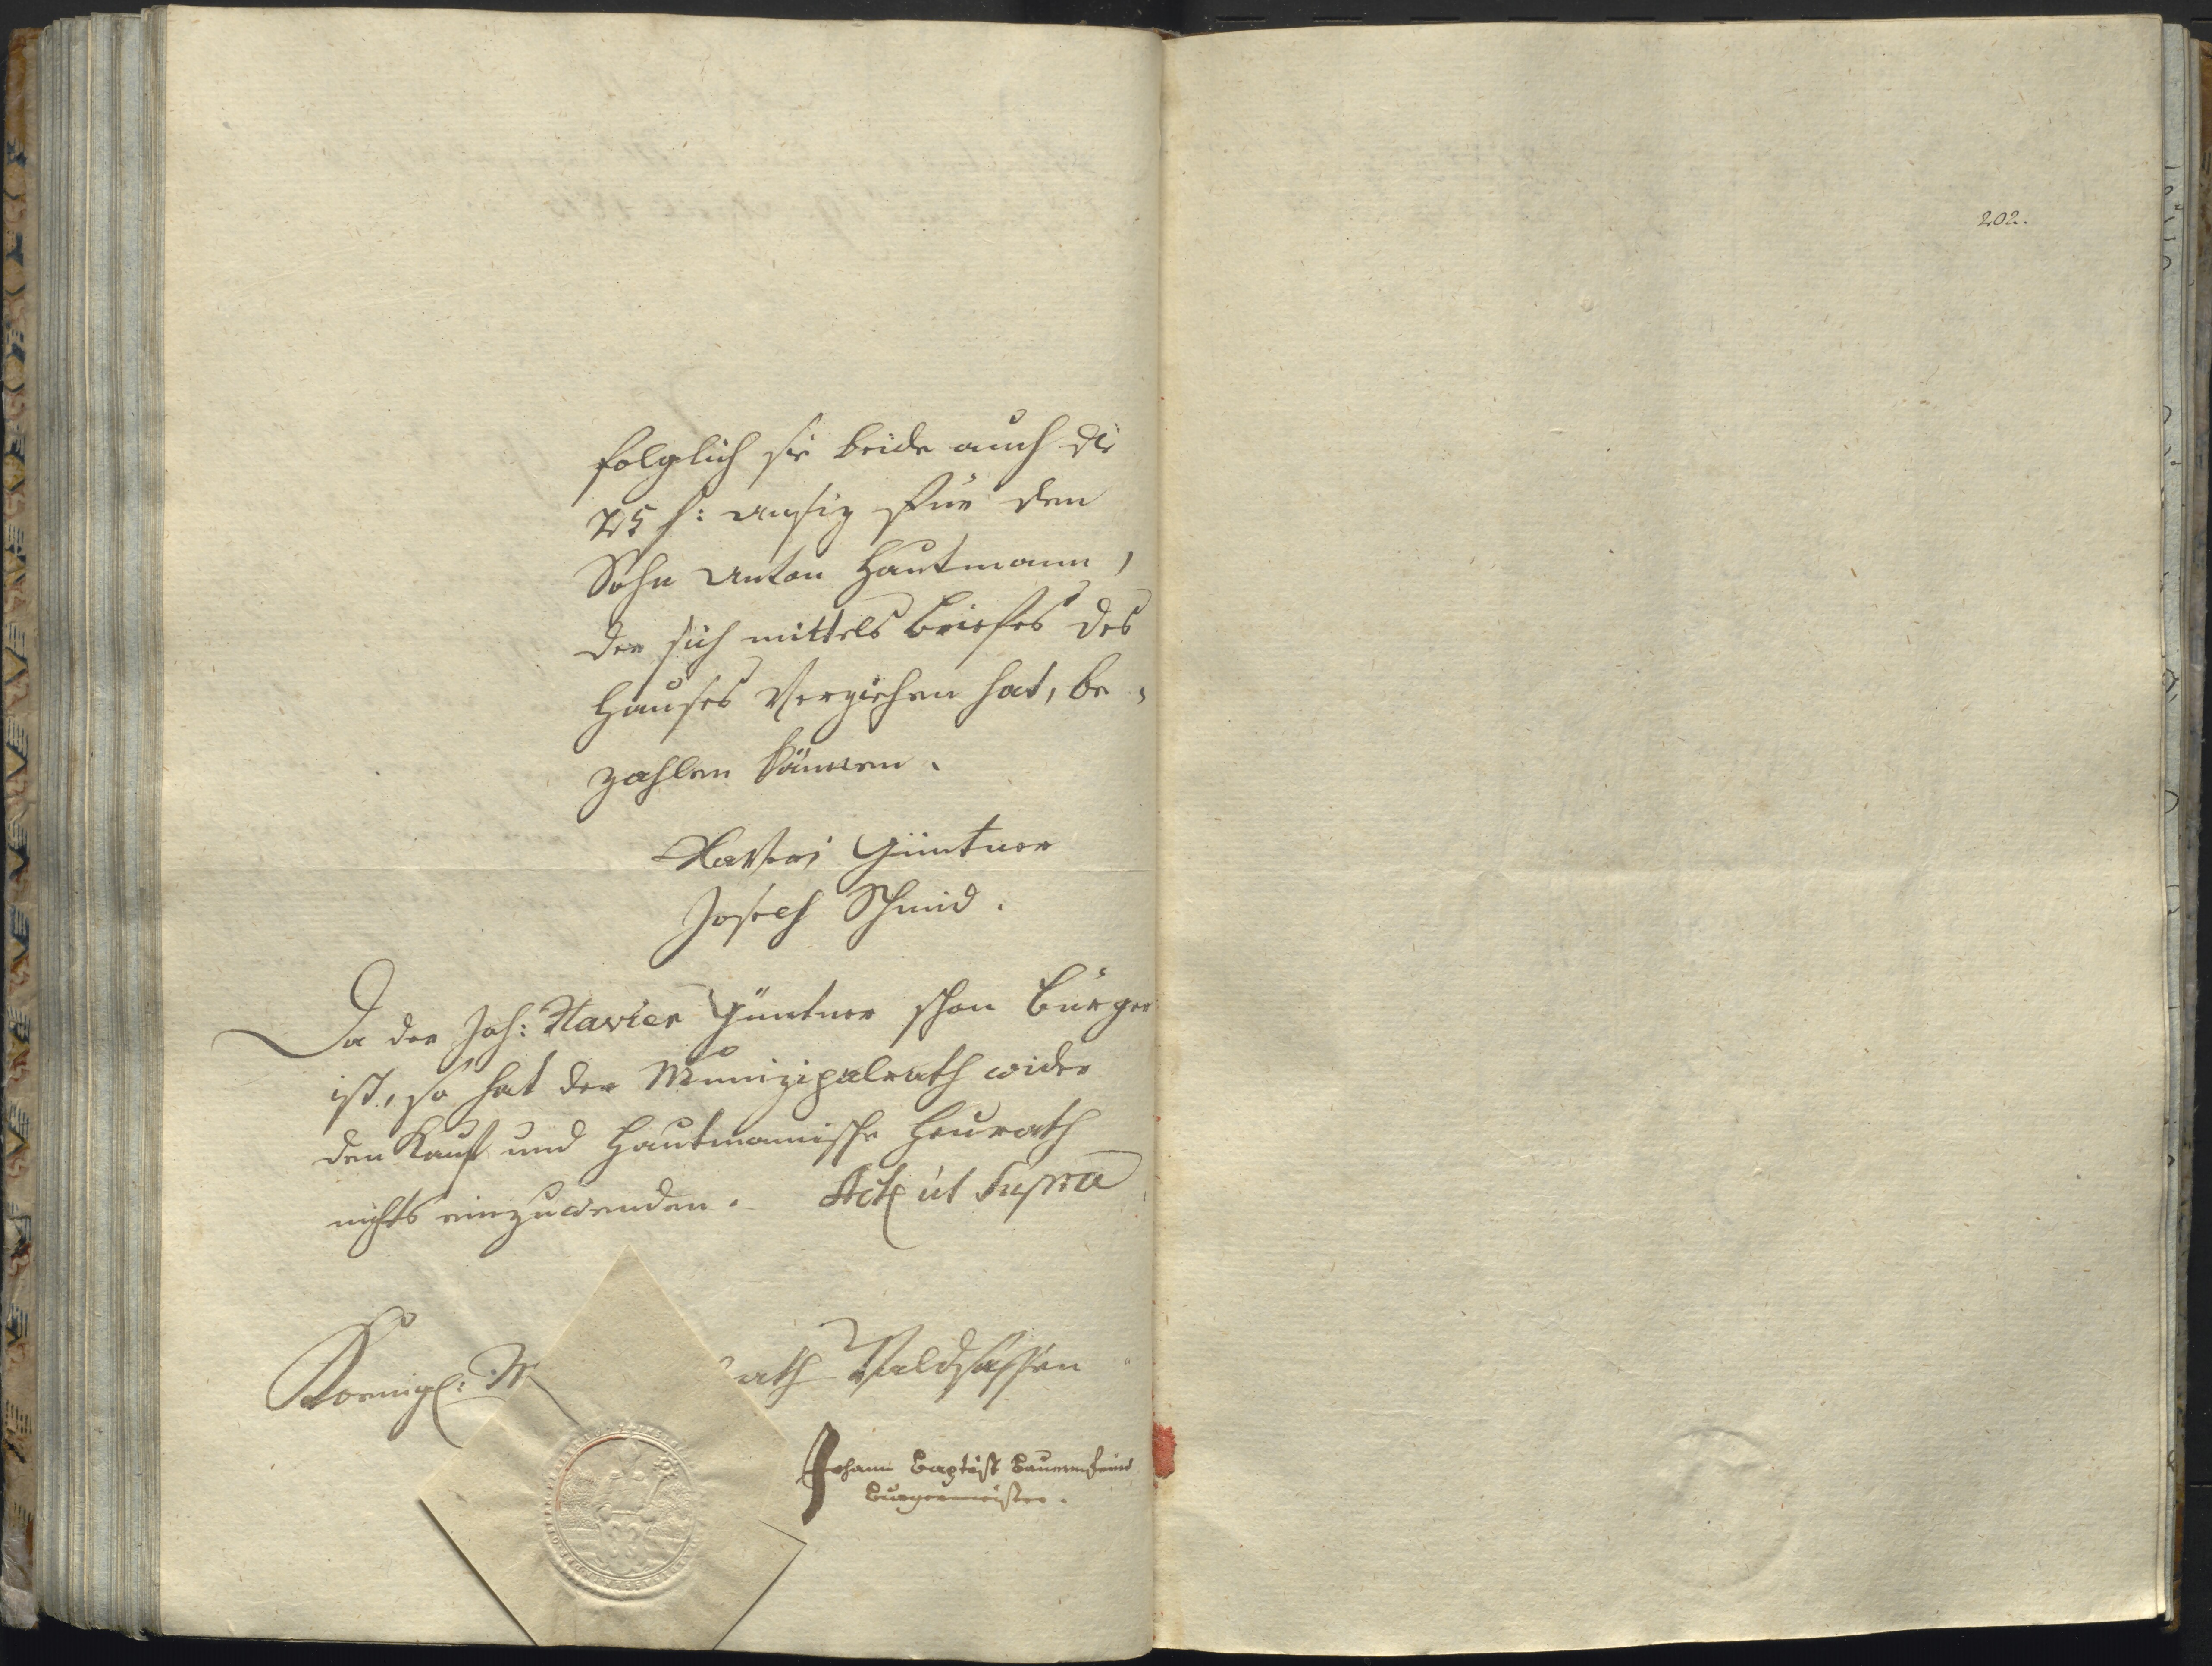 folglich sie beide auch die
25 f: ansig für den
Sohn Anton Hautmann,
der sich mittels Briefes des
Hauses Verziehen hat, be-
zahlen können.
Xaveri Güntner
Joseph Schmid.
Da der Joh: Xavier Güntner schon Bürger
ist, so hat der Munizipalrath wider
den Kauf und Hautmannische Heurath
nichts einzuwenden. Act ut Supra
Koenigl: M ath Waldsassen
Johann Baptist Bauernfeind
Burgermeister.
202.